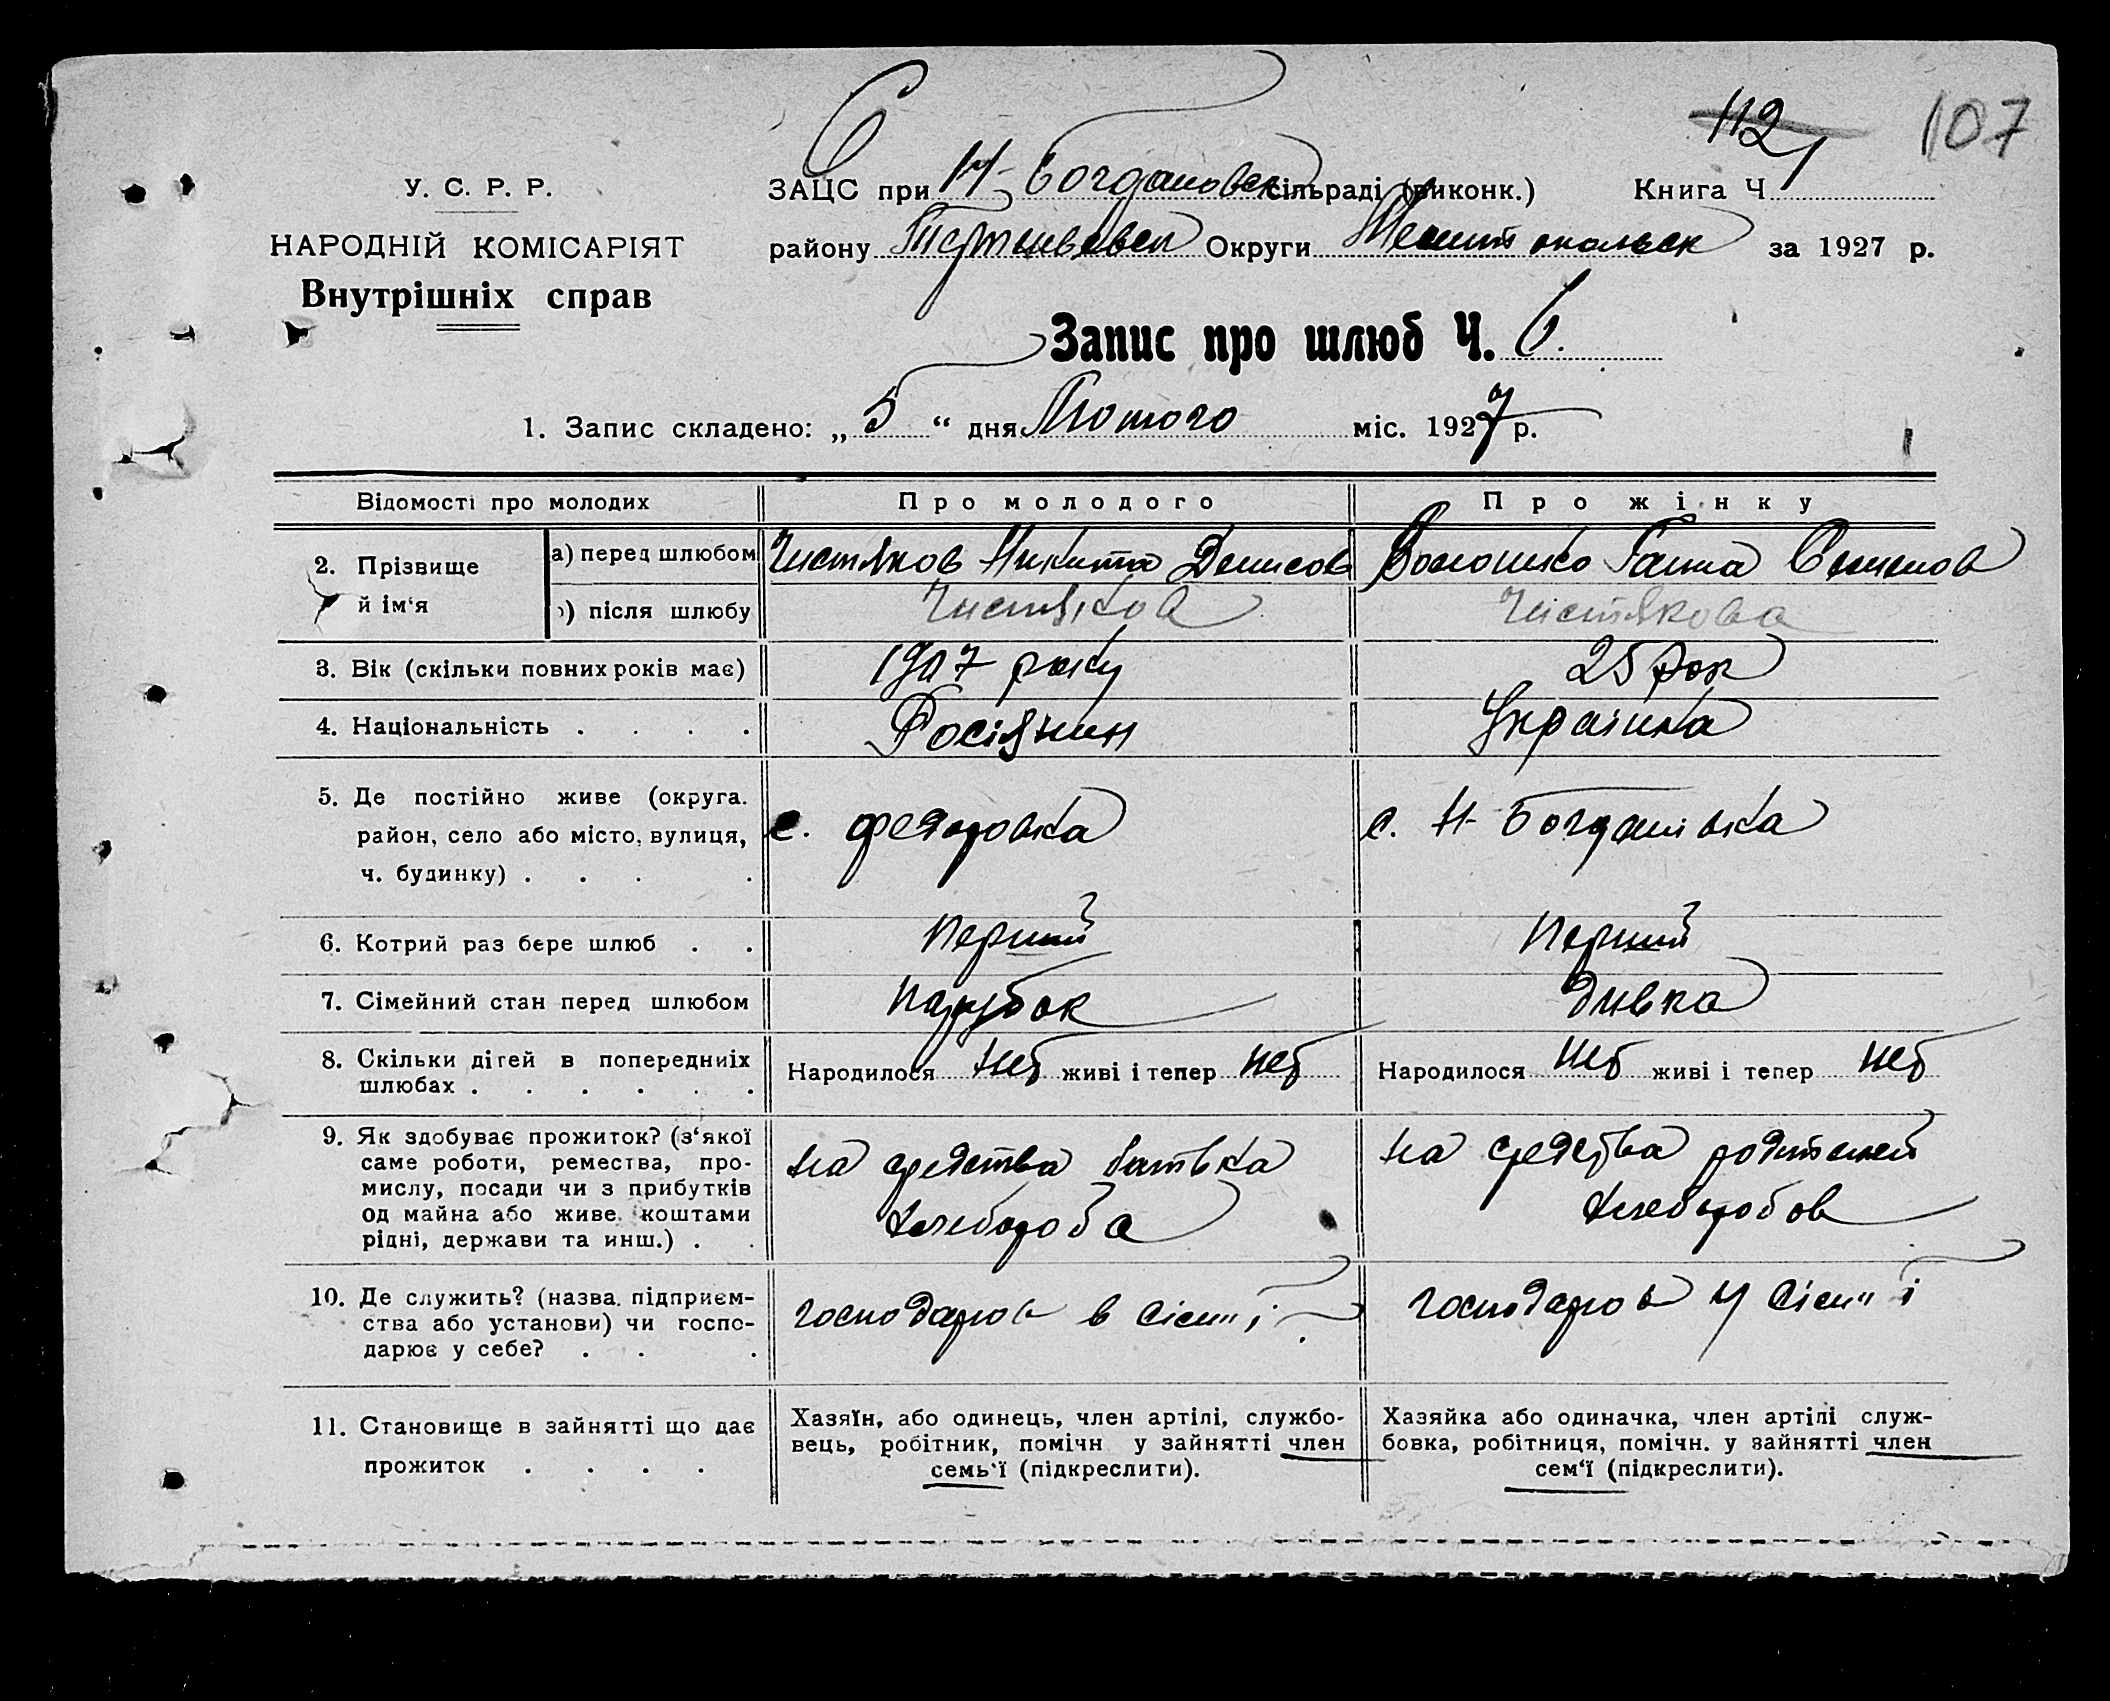 112 107
У. С. Р. Р.
ЗАЦС при Н-Богдановск сільраді (виконк.) Книга Ч. 1
НАРОДНІЙ КОМІСАРІЯТ
району Терпеньевск Округи Мелитопольск за 1927 р.
Внутрішніх справ
Запис про шлюб Ч. 6.
1. Запис складено: „ 5 “ дня Лютого міс. 1927 р.
Відомості про молодих Про молодого Про жінку
2. Прізвище й ім‘я
а) перед шлюбом Чистяков Никита Денисов Волошко Ганна Семенов
) після шлюбу Чистяков Чистякова
3. Вік (скільки повних років має) 1907 року 25 рок
4. Національність . . . . Росіянин Украінка
5. Де постійно живе (округа.
район, село або місто, вулиця, с. Федоровка с. Н-Богданівка
ч. будинку) . . . .
6. Котрий раз бере шлюб . . Перший Перший
7. Сімейний стан перед шлюбом Парубок Дивка
8. Скільки дітей в попередниіх
шлюбах . . . . . . Народилося нет живі і тепер нет Народилося нет живі і тепер нет
9. Як здобуває прожиток? (з‘якої
саме роботи, ремества, про-
мислу, посади чи з прибутків
од майна або живе коштами
рідні, держави та инш.) . .
на средства батька
хлебороба
на средства родителей
хлеборобов
10. Де служить? (назва підприєм-
ства або установи) чи госпо-
дарює у себе? . . .
господарює в сімї
господарює у сімї
11. Становище в зайнятті що дає
прожиток . . . .
Хазяїн, або одинець, член артілі, службо-
вець, робітник, помічн у зайнятті член
семь‘ї (підкреслити).
Хазяйка або одиначка, член артілі служ-
бовка, робітниця, помічн. у зайнятті член
сем‘ї (підкреслити).